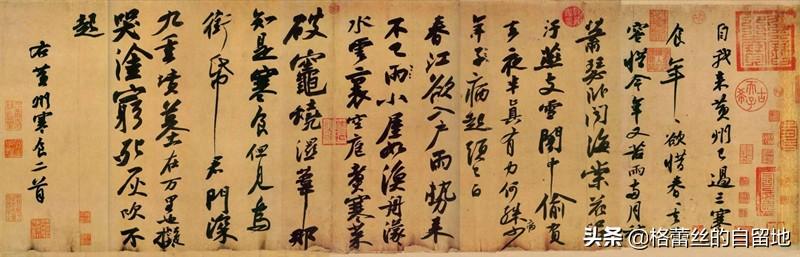 自我來黃州已過三寒
食年〻欲惜春〻去
容惜今年又苦雨兩月
蕭瑟臥聞海棠花
汙燕支雪闇中偷負
去夜半真有力何殊少
年子病起頭已白
春江欲入戶雨勢來
不已雨小屋如漁舟濛
水雲裏空庖煮寒菜
破竈燒濕葦那
知是寒食但見烏
銜帋君門深
九重墳墓在万里也擬
哭塗窮死灰吹不
起
右黃州寒食二首
头条 @格蕾丝的自留地